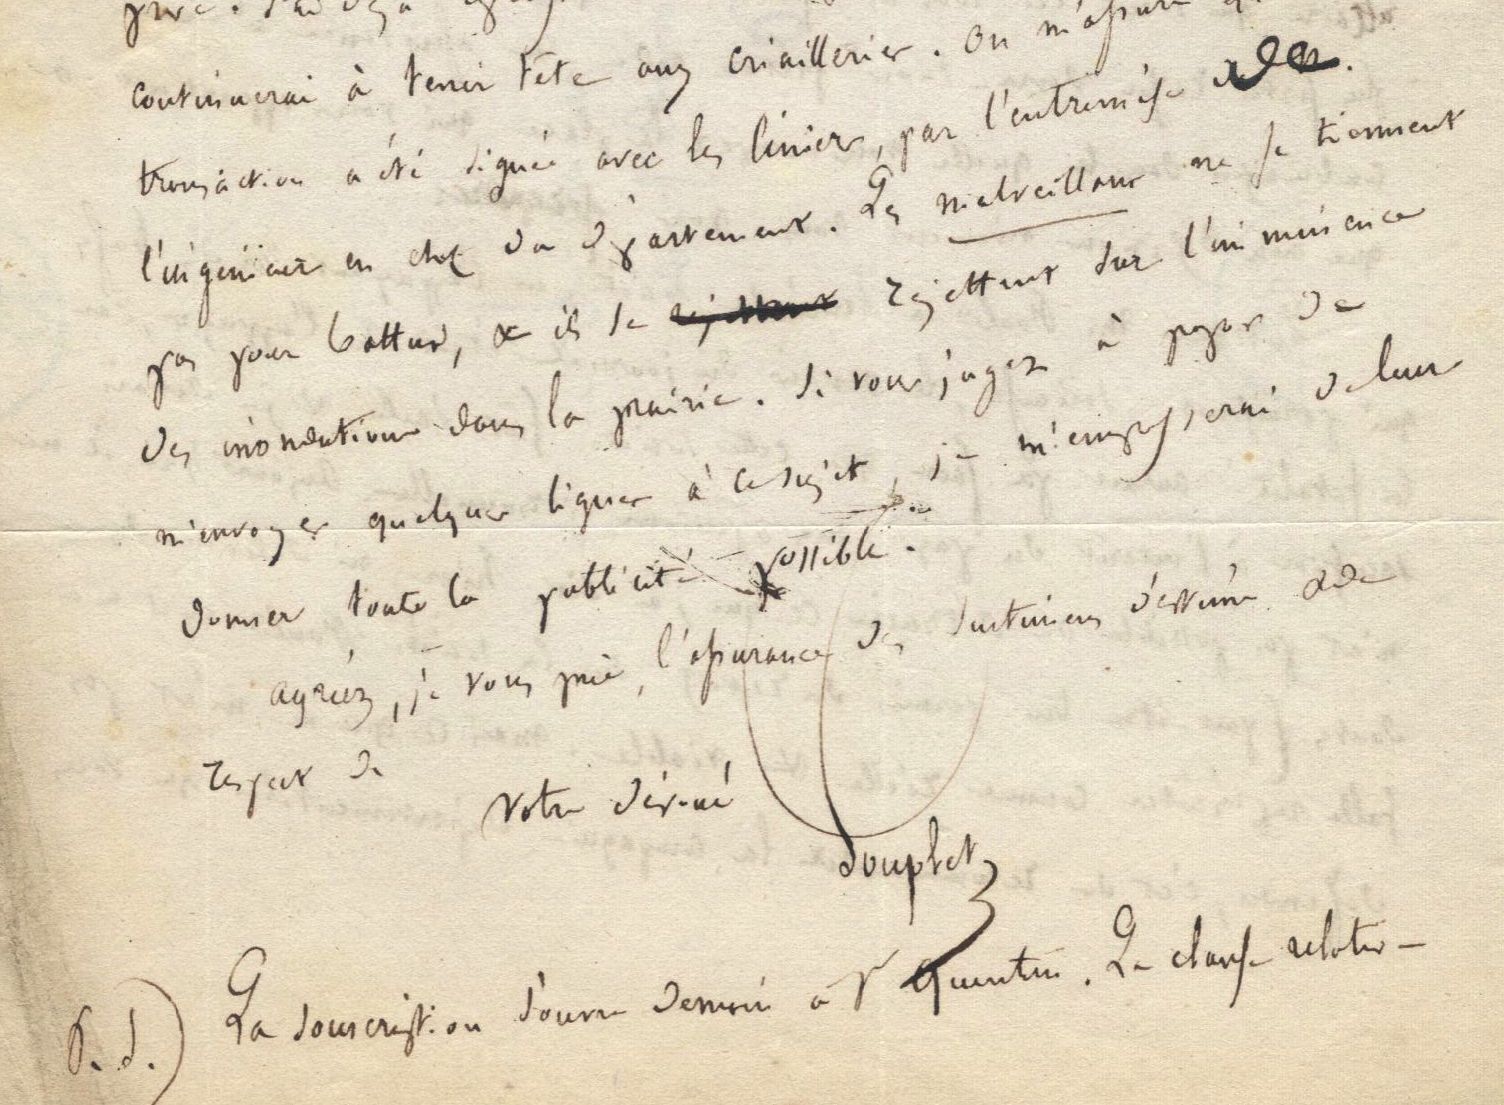 continuerai à tenir tête aux criailleries. On m'assure
transaction a été signée avec les liniers, par l'entremise de
l'ingénieur en chef du département. Les malveillans ne se tiennent
pas pour battus, & ils se rejettent sur l'imminence
des inondations dans la prairie. Si vous jugez à propos de
m'envoyer quelques lignes à ce sujet, je m'empresserai de leur
donner toute la publicité possible.
agréez, je vous prie, l'assurance des sentimens d'estime & de
respect de
Votre dévoué
Souplet
P. S.) La souscription s'ouvre demain à St Quentin. La clause relative